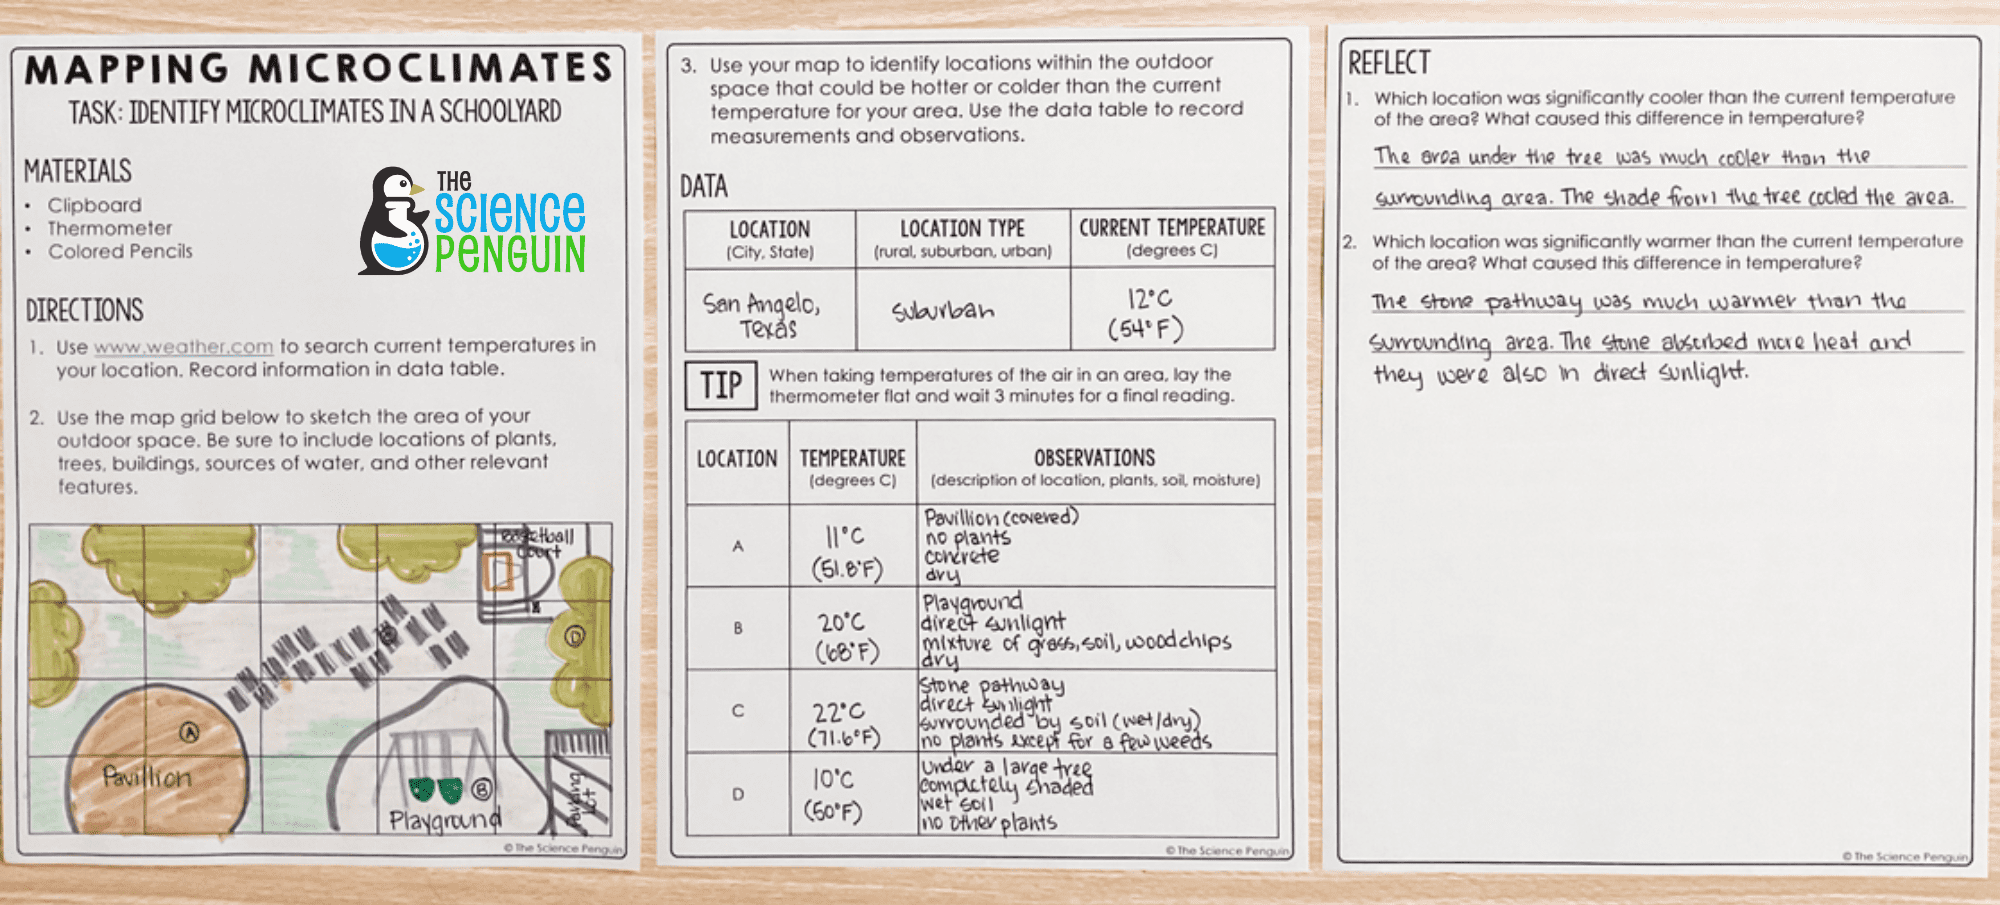 MAPPING MICROCLIMATES
TASK: IDENTIFY MICROCLIMATES IN A SCHOOLYARD
MATERIALS
• Clipboard
• Thermometer
• Colored Pencils
THE
SCIENCE
PENGUIN
DIRECTIONS
1. Use www.weather.com to search current temperatures in
your location. Record information in data table.
2. Use the map grid below to sketch the area of your
outdoor space. Be sure to include locations of plants,
trees, buildings, sources of water, and other relevant
features.
Basketball
Court
D
A
Pavillion
B
Playground
Parking
Lot
© The Science Penguin
3. Use your map to identify locations within the outdoor
space that could be hotter or colder than the current
temperature for your area. Use the data table to record
measurements and observations.
DATA
LOCATION
(City, State)
LOCATION TYPE
(rural, suburban, urban)
CURRENT TEMPERATURE
(degrees C)
San Angelo,
Texas
suburban
12°C
(54°F)
TIP
When taking temperatures of the air in an area, lay the
thermometer flat and wait 3 minutes for a final reading.
LOCATION
TEMPERATURE
(degrees C)
OBSERVATIONS
(description of location, plants, soil, moisture)
A
11°C
(51.8°F)
Pavillion (covered)
no plants
concrete
dry
B
20°C
(68°F)
Playground
direct sunlight
mixture of grass, soil, woodchips
dry
C
22°C
(71.6°F)
Stone pathway
direct sunlight
surrounded by soil (wet/dry)
no plants except for a few weeds
D
10°C
(50°F)
Under a large tree
completely shaded
wet soil
no other plants
© The Science Penguin
REFLECT
1. Which location was significantly cooler than the current temperature
of the area? What caused this difference in temperature?
The area under the tree was much cooler than the
surrounding area. The shade from the tree cooled the area.
2. Which location was significantly warmer than the current temperature
of the area? What caused this difference in temperature?
The stone pathway was much warmer than the
surrounding area. The stone absorbed more heat and
they were also in direct sunlight.
© The Science Penguin